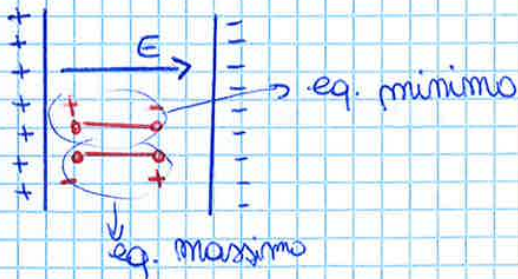 + -
+ E -
+ -
+ -
+ + - - eq. minimo
+ -
+ - + -
-
eq. massimo